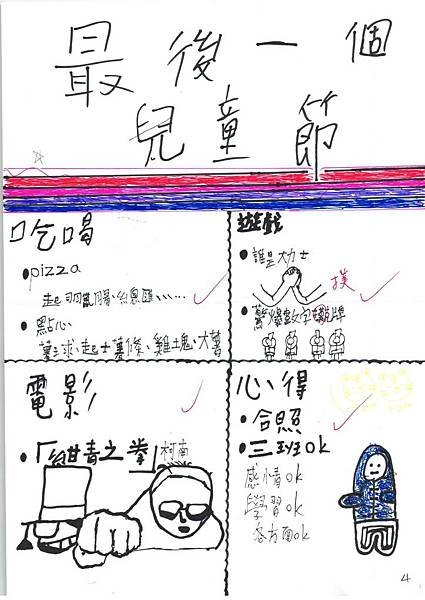 最後一個
兒童節
吃喝
•pizza
•點心
起士薯條、雞塊、大薯
遊戲
•誰是大力士
撲
•驚爆數字
電影
•「紺青之拳」柯南
心得
•合照
•三班ok
感情ok
學習ok
各方面ok
4